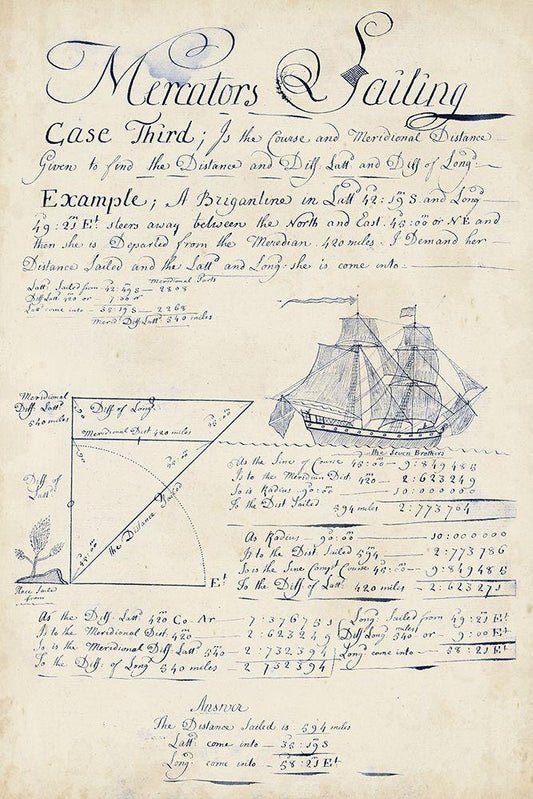 Mercators Sailing
Case Third; Is the Course and Meridional Distance
Given to find the Distance and Diff. Latt and Diff of Long
Example; A Brigantine in Latt 42:19 S and Long
49:21 Et steers away between the North and East. 45:00 or NE and
then she is Departed from the Meredian. 420 miles. I Demand her
Distance Sailed and the Latt and Long she is come into
Meridional Parts
Latt Sailed from 42:19 S 2808
Diff Latt 420 or 7:00
Latt come into 35:19 S 2268
Merid Diff Latt 540 miles
Meridional
Diff. Latt
540 miles
Diff of Long
Meridional Dist 420 miles
Diff of
Latt
The Distance Sailed
45:00
Et
Place Sailed
from
The Seven Brothers
As the Sine of Course 45:00 9:849485
Is to the Meridian Dist. 420 2:623249
So is Radius 90:00 10:000000
To the Dist Sailed 594 miles 2:773764
As Radius 90:00 10:000000
Is to the Dist. Sailed 594 2:773786
So is the Sine Comp Course 45:00 9:849485
To the Diff of Latt 420 miles 2:623271
As the Diff. Latt 420 Co Ar 7:376751
Is to the Meridional Dist. 420 2:623249
So is the Meridional Diff. Latt 540 2:732394
To the Diff. of Long 540 miles 2 732394
Long Sailed from 49:21 Et
Diff Long 540 miles or 9:00 Et
Long come into 58:21 Et
Answer
The Distance Sailed is 594 miles
Latt come into 35:19 S
Long come into 58:21 Et